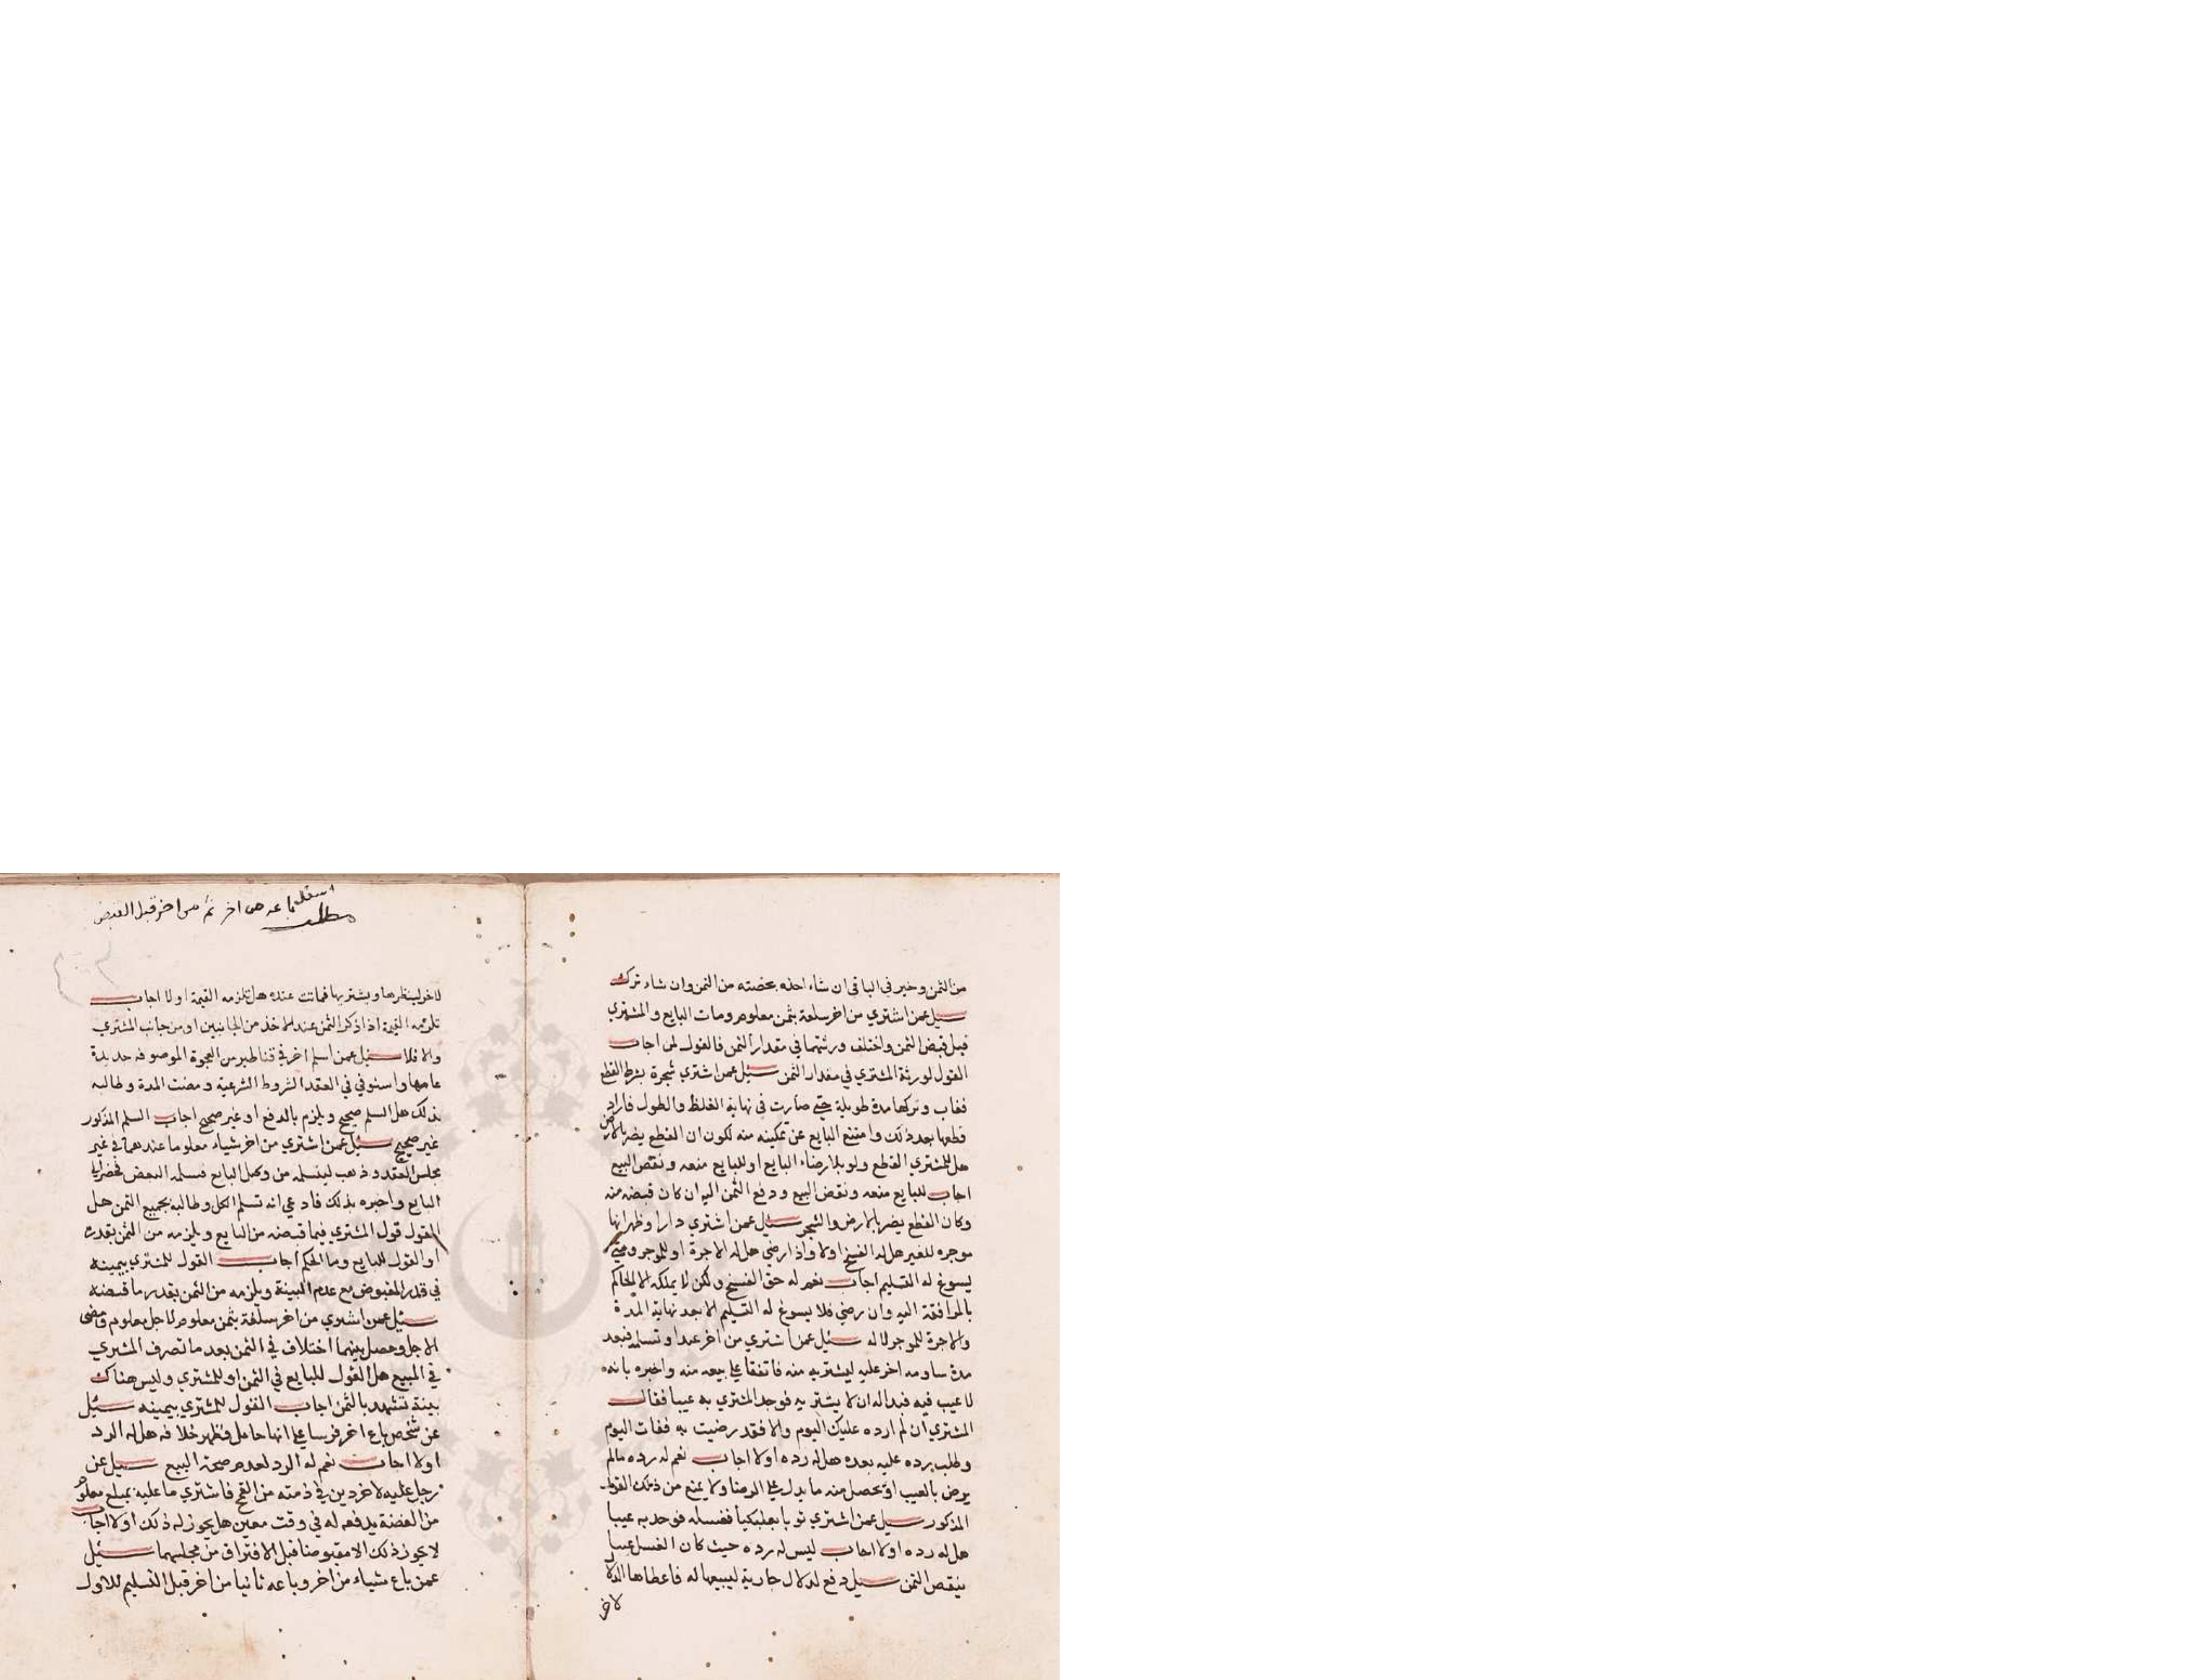 من الثمن وخير في الباقي ان شاء اخذه بحصته من الثمن وان شاء ترك
سئل عمن اشتري من اخر سلعة بثمن معلوم ومات البايع والمشتري
قبل قبض الثمن واختلف ورثتهما في مقدار الثمن فالقول لمن اجاب
القول لورثة المشتري في مقدار الثمن سئل عمن اشتري شجرة بشرط القطع
فغاب وتركها مدة طويلة حتى صارت في نهاية الغلظ والطول فاراد
قطعها بعد ذلك وامتنع البايع عن تمكينه منه لكون ان القطع يضر بالارض
هل للمشتري القطع ولو بلا رضاء البايع او للبايع منعه ونقض البيع
اجاب للبايع منعه ونقض البيع ودفع الثمن اليه ان كان قبضه منه
وكان القطع يضر بالارض والشجر سئل عمن اشتري دارا وظهر انها
موجره للغير هل له الفسخ اولا واذا رضي هل له الاجرة او للموجر ومتى
يسوغ له التسليم اجاب نعم له حق الفسخ ولكن لا يملكه الا الحاكم
بالمرافقة اليه وان رضي فلا يسوغ له التسليم الا بعد نهاية المدة
والاجرة للموجر لا له سئل عمن اشتري من اخر عبدا وتسلمه فبعد
مدة ساومه اخر عليه ليشتريه منه فاتفقا على بيعه منه واخبره بانه
لا عيب فيه فبدا له ان لا يشتريه فوجد المشتري به عيبا فقال
المشتري ان لم ارده عليك اليوم والا فقد رضيت به ففات اليوم
وطلب برده عليه بعده هل له رده اولا اجاب نعم له رده مالم
يرض بالعيب او يحصل منه ما يدل على الرضا ولا يمنع من ذلك القول
المذكور سئل عمن اشتري ثوبا بعلبكيا فغسله فوجد به عيبا
هل له رده اولا اجاب ليس له رده حيث كان الغسل عيبا
ينقص الثمن سئل دفع لدلال جارية ليبيعها له فاعطاها الدلال
لاخر
مطلب
باعه من اخر ثم من اخر قبل القبض
لاخر لينظرها ويشتريها فماتت عنده هل تلزمه القيمة اولا اجاب
تلزمه القيمة اذا ذكر الثمن عند الاخذ من الجانبين او من جانب المشتري
والا فلا سئل عمن اسلم اخر في قناطير من العجوة الموصوفه جديدة
عامها واستوفي في العقد الشروط الشرعية ومضت المدة وطالبه
بذلك هل السلم صحيح ويلزم بالدفع او غير صحيح اجاب السلم المذكور
غير صحيح سئل عمن اشتري من اخر شياء معلوما عندهما في غير
مجلس العقد وذهب ليتسلمه من وكيل البايع فسلمه البعض فحضر الى
البايع واخبره بذلك فادعي انه تسلم الكل وطالبه بجميع الثمن هل
القول قول المشتري فيما قبضه من البايع ويلزمه من الثمن بقدره
او القول للبايع وما الحكم اجاب القول للمشتري بيمينه
في قدر المقبوض مع عدم البينة ويلزمه من الثمن بقدر ما قبضه
سئل عمن اشتري من اخر سلعة بثمن معلوم لاجل معلوم فمضى
الاجل وحصل بينهما اختلاف في الثمن بعد ما تصرف المشتري
في المبيع هل القول للبايع في الثمن او للمشتري وليس هناك
بينة تشهد بالثمن اجاب القول للمشتري بيمينه سئل
عن شخص باع اخر فرسا على انها حامل فظهر خلافه هل له الرد
اولا اجاب نعم له الرد لعدم صحة البيع سئل عن
رجل عليه لاخر دين في ذمته من القمح فاشتري ما عليه بمبلغ معلوم
من الفضة يدفعه له في وقت معين هل يجوز له ذلك اولا اجاب
لا يجوز ذلك الا مقبوضا قبل الافتراق من مجلسهما سئل
عمن باع شياء من اخر وباعه ثانيا من اخر قبل التسليم للاول